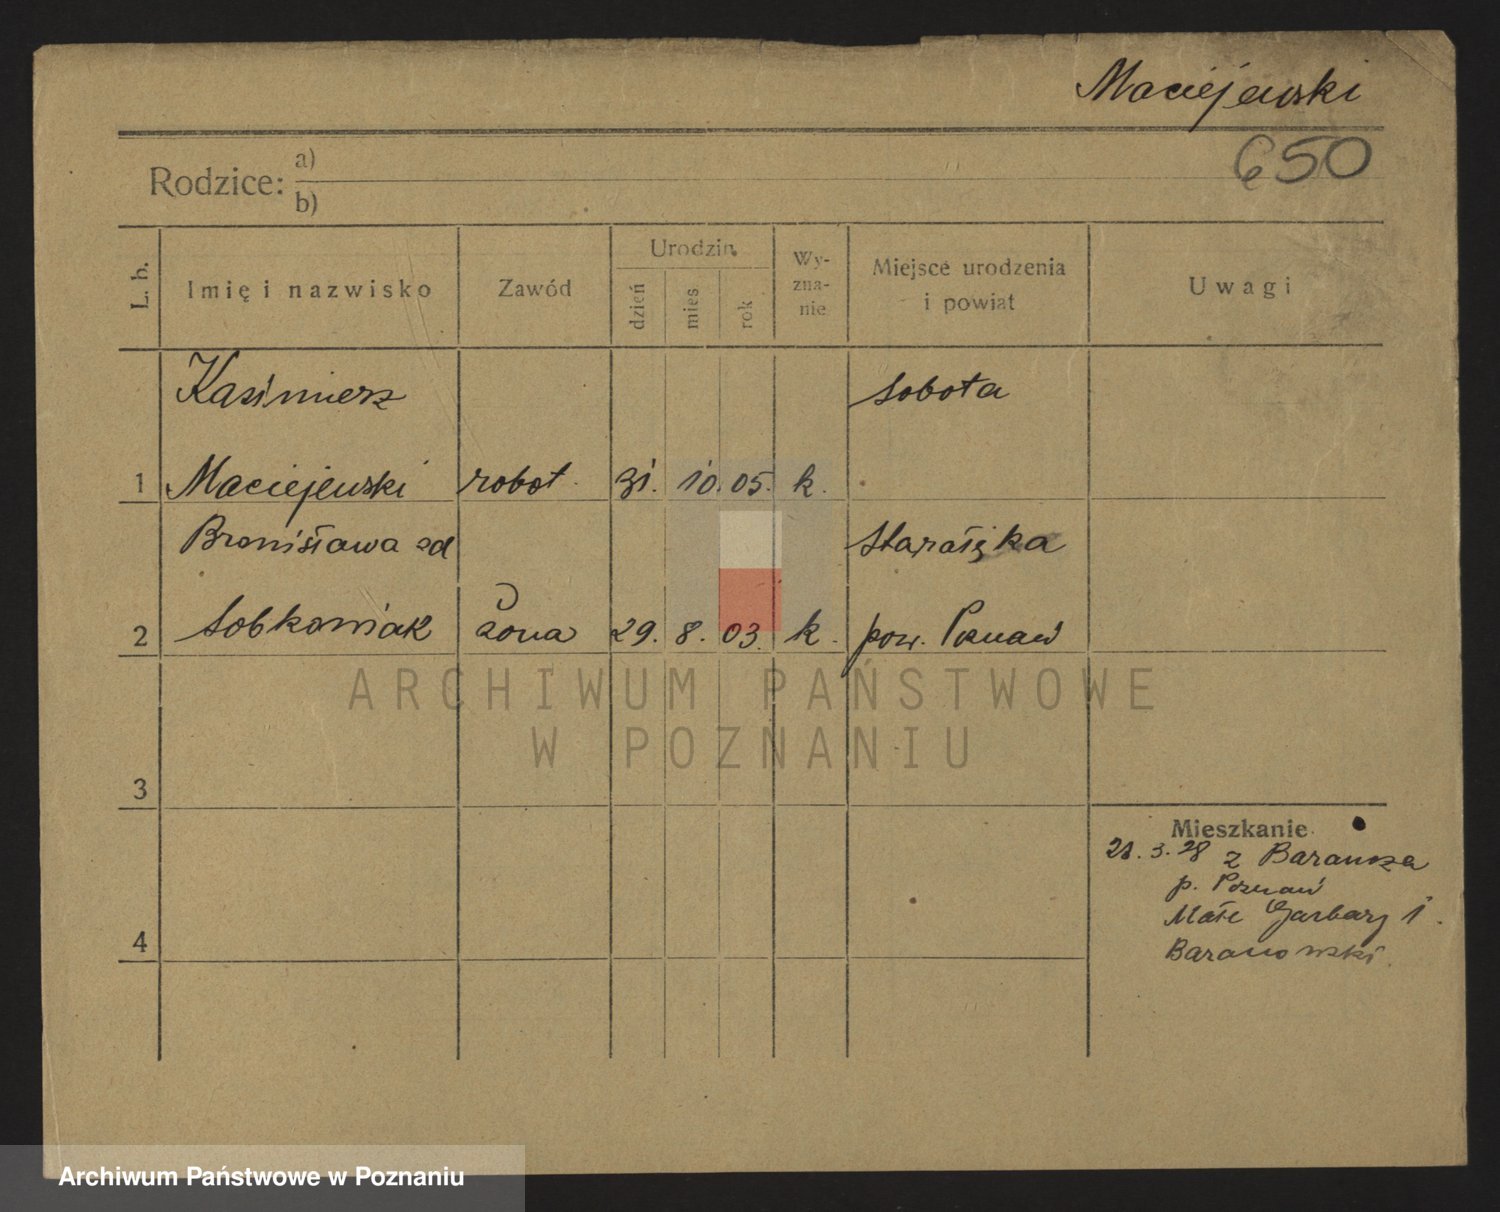 Maciejewski
650
Rodzice: a)
b)
L. b.
Imię i nazwisko
Zawód
Urodzin.
dzień
mies
rok
Wy-
zna-
nie
Miejsce urodzenia
i powiat
Uwagi
Kazimierz
Sobota
1 Maciejewski robot. 31. 10. 05. k.
Bronisława zd
Starołęka
2 Sobkowiak żona 29. 8. 03. k. pow. Poznań
ARCHIWUM PAŃSTWOWE
W POZNANIU
3
Mieszkanie
28 z
p. Poznań
Małe Garbary 1.
4
Baranowski.
Archiwum Państwowe w Poznaniu